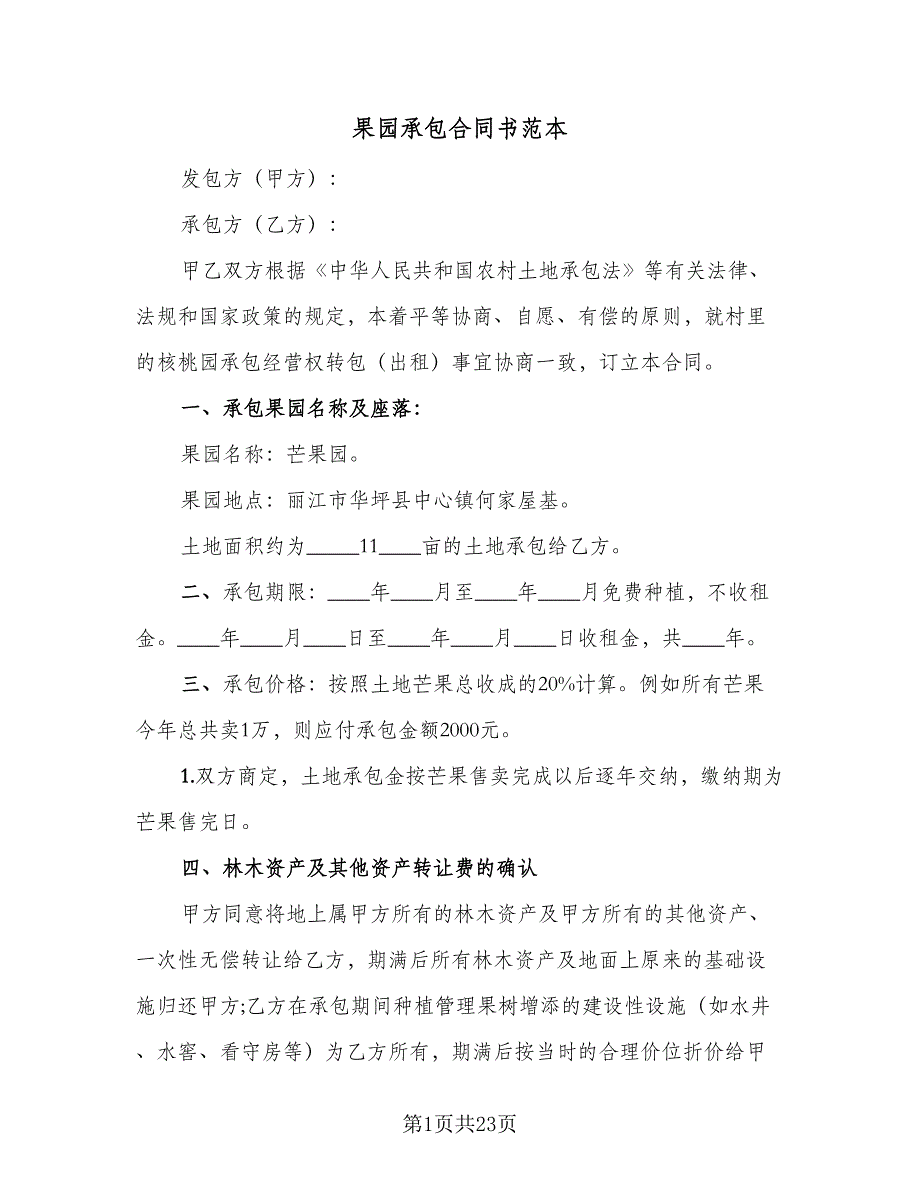 果园承包合同书范本
发包方（甲方）：
承包方（乙方）：
甲乙双方根据《中华人民共和国农村土地承包法》等有关法律、
法规和国家政策的规定，本着平等协商、自愿、有偿的原则，就村里
的核桃园承包经营权转包（出租）事宜协商一致，订立本合同。
一、承包果园名称及座落：
果园名称：芒果园。
果园地点：丽江市华坪县中心镇何家屋基。
土地面积约为_____11____亩的土地承包给乙方。
二、承包期限：____年____月至____年____月免费种植，不收租
金。____年____月____日至____年____月____日收租金，共____年。
三、承包价格：按照土地芒果总收成的20%计算。例如所有芒果
今年总共卖1万，则应付承包金额2000元。
1.双方商定，土地承包金按芒果售卖完成以后逐年交纳，缴纳期为
芒果售完日。
四、林木资产及其他资产转让费的确认
甲方同意将地上属甲方所有的林木资产及甲方所有的其他资产、
一次性无偿转让给乙方，期满后所有林木资产及地面上原来的基础设
施归还甲方;乙方在承包期间种植管理果树增添的建设性设施（如水井
、水窖、看守房等）为乙方所有，期满后按当时的合理价位折价给甲
第1页共23页